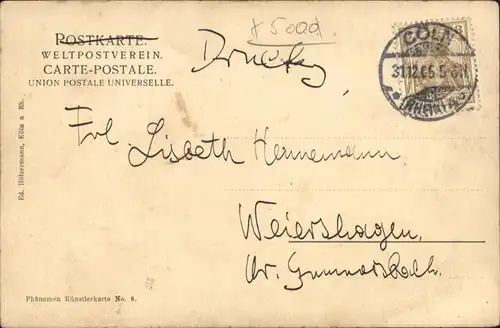 * 5000
POSTKARTE.
WELTPOSTVEREIN.
CARTE-POSTALE.
UNION POSTALE UNIVERSELLE.
Drucks.
CÖLN
31.12.05 5-6N
(RHEIN)
Frl. Lisbeth Hermemann
Weiershagen,
Kr. Gummersbach.
Ed. Hölzermann, Köln a Rh.
Phänomen Künstlerkarte No. 8.